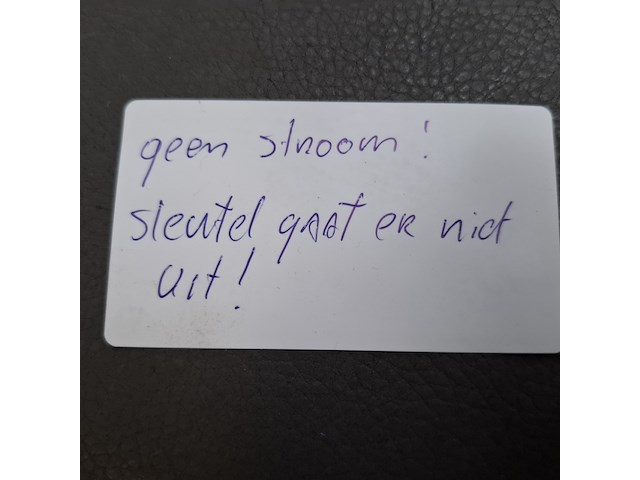 geen stroom!
sleutel gaat er niet
uit!